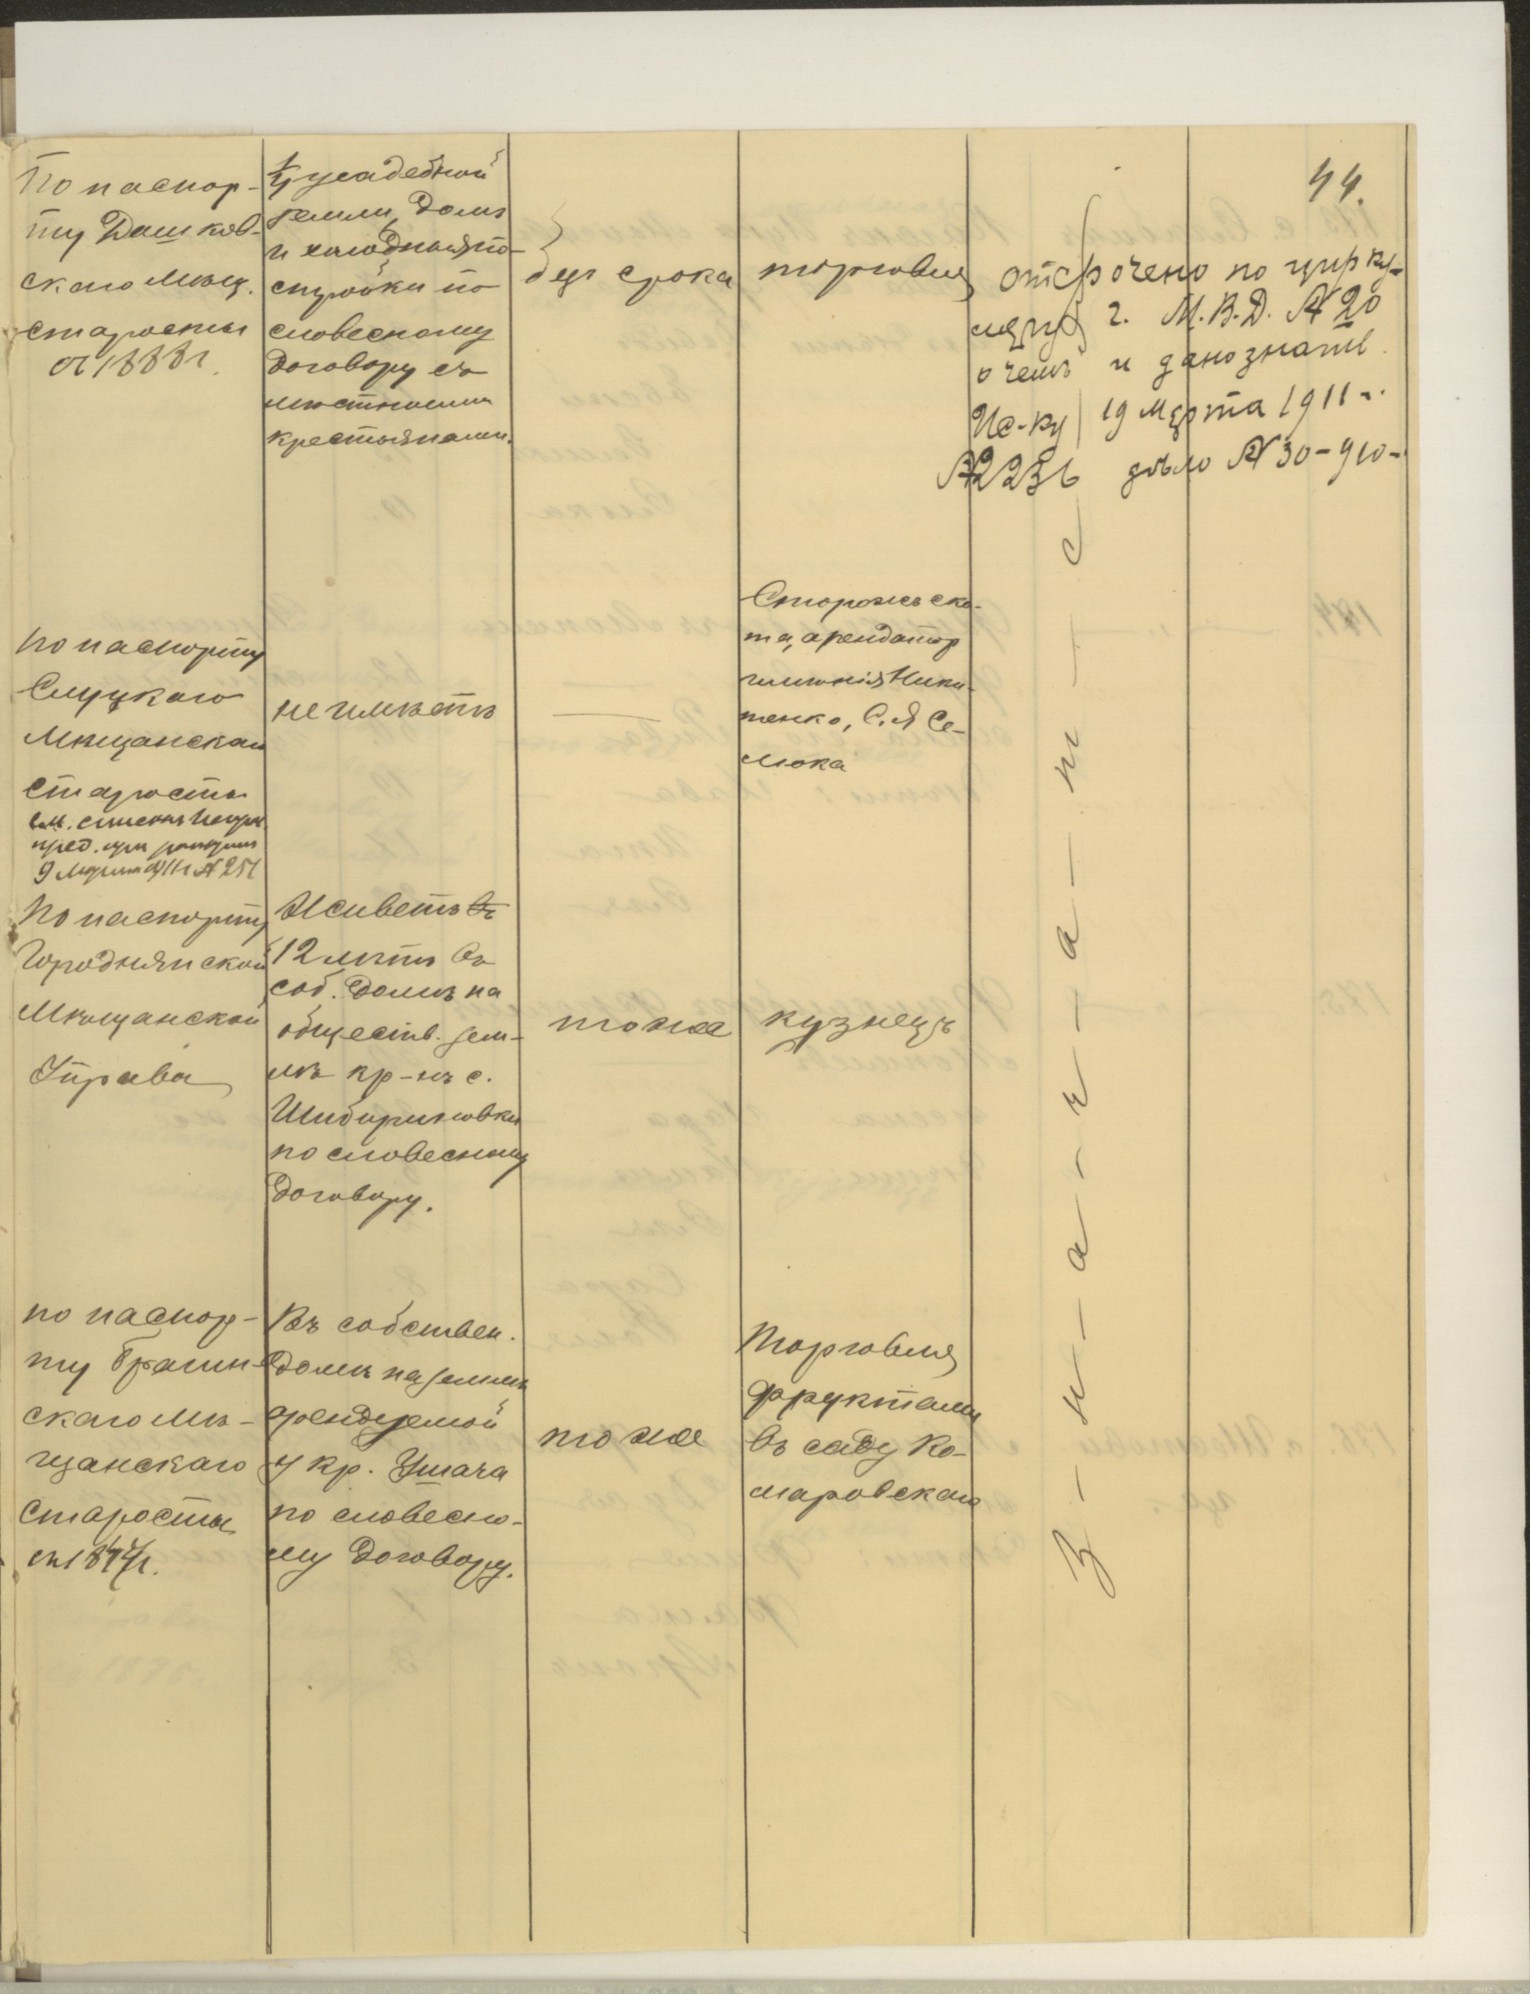 44.
По паспор-
ту Дашков-
скаго Мѣщ.
старосты
от 1888 г.
1/4 усадебной
земли, домъ
и холодныя по-
стройки по
словесному
договору съ
мѣстными
крестьянами.
без срока
торговля
отсрочено по цирку-
ляру г. М.В.Д. № 20
о чемъ и дано знать
Ис-ку 19 Марта 1911 г.
№ 2236 дѣло № 30-910-
По паспорту
Слуцкаго
Мѣщанскаго
старосты
см. списокъ
9 Марта 911 г. № 251
не имѣетъ
Сторожъ ско-
та, арендатор
имѣнія Ники-
тенко, С. Я. Се-
мока
По паспорту
Городнянской
Мѣщанской
Управы
Живетъ
12 лѣтъ въ
соб. домѣ на
обществ. зем-
лѣ кр-нъ с.
Шибириновки
по словесному
договору.
тоже
кузнецъ
по паспор-
ту Брагин-
скаго Мѣ-
щанскаго
старосты
Въ собствен.
домѣ на землѣ
арендуемой
у кр. Умача
по словесно-
му договору.
тоже
Торговля
фруктами
въ саду Ко-
маровскаго
З-н-а-ч-а-т-с